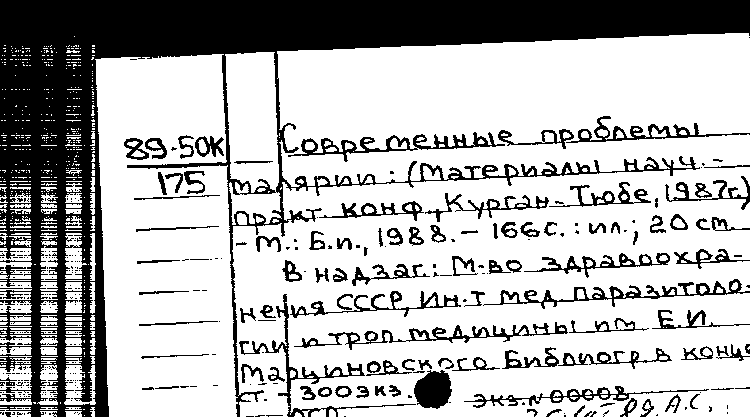 89-50К Современные проблемы
175 малярии : (Материалы науч.-
практ. конф., Курган-Тюбе, 1987г.)
- М.: Б.и., 1988. - 166с. : ил.; 20 см.
В надзаг.: М-во здравоохра-
нения СССР, Ин-т мед. паразитоло-
гии и троп. медицины им Е.И.
Марциновского. Библиогр. в конце
ст. - 300экз. экз.N 00008